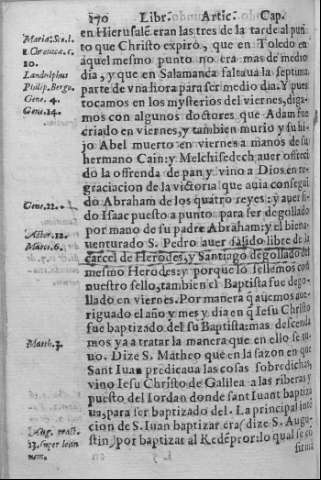 170 Libr. Artic. Cap.
en Hierusalẽ eran las tres de la tarde al punto
to que Christo expirò, que en Toledo en
aquel mesmo punto no era mas de medio
dia, y que en Salamanca faltaua la septima
parte de vna hora para ser medio dia. Y pues
tocamos en los mysterios del viernes, diga-
mos con algunos doctores que Adam fue
criado en viernes, y tambien murio y su hi-
jo Abel muerto en viernes a manos de su
hermano Cain: y Melchisedech auer offreci
do la offrenda de pan y vino a Dios en re-
graciacion de la victoria que auia consegui
do Abraham de los quatro reyes: y auer si-
do Isaac puesto a punto para ser degollado
por mano de su padre Abraham: y el bien-
uenturado S. Pedro auer salido libre de la
carcel de Herodes, y Santiago degollado del
mesmo Herodes: y porque lo sellemos con
nuestro sello, tambien el Baptista fue dego-
llado en viernes. Por manera q̃ auemos aue-
riguado el año y mes y dia en q̃ Iesu Christo
fue baptizado del su Baptista: mas descenda
mos ya a tratar la manera que en ello se tu-
uo. Dize S. Matheo que en la sazon en que
Sant Iuan predicaua las cosas sobredichas,
vino Iesu Christo de Galilea a las riberas y
puesto del Iordan donde sant Iuant baptiza
ua, para ser baptizado del. La principal intẽ
cion de S. Iuan baptizar era (dize S. Augu-
stin) por baptizar al Redẽptor: lo qual se si
Maria: Sco. l.
10.
Landulphus
Philip. Bergo.
Gene. 4.
Gene. 14.
Gene. 22.
Actor. 12.
Marci. 6.
Matth. 3.
Aug. tract.
13. super Ioan
nem.